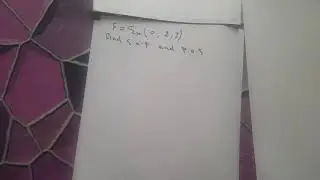 F = Σm (0, 2, 3)
Find S.O.P and P.O.S